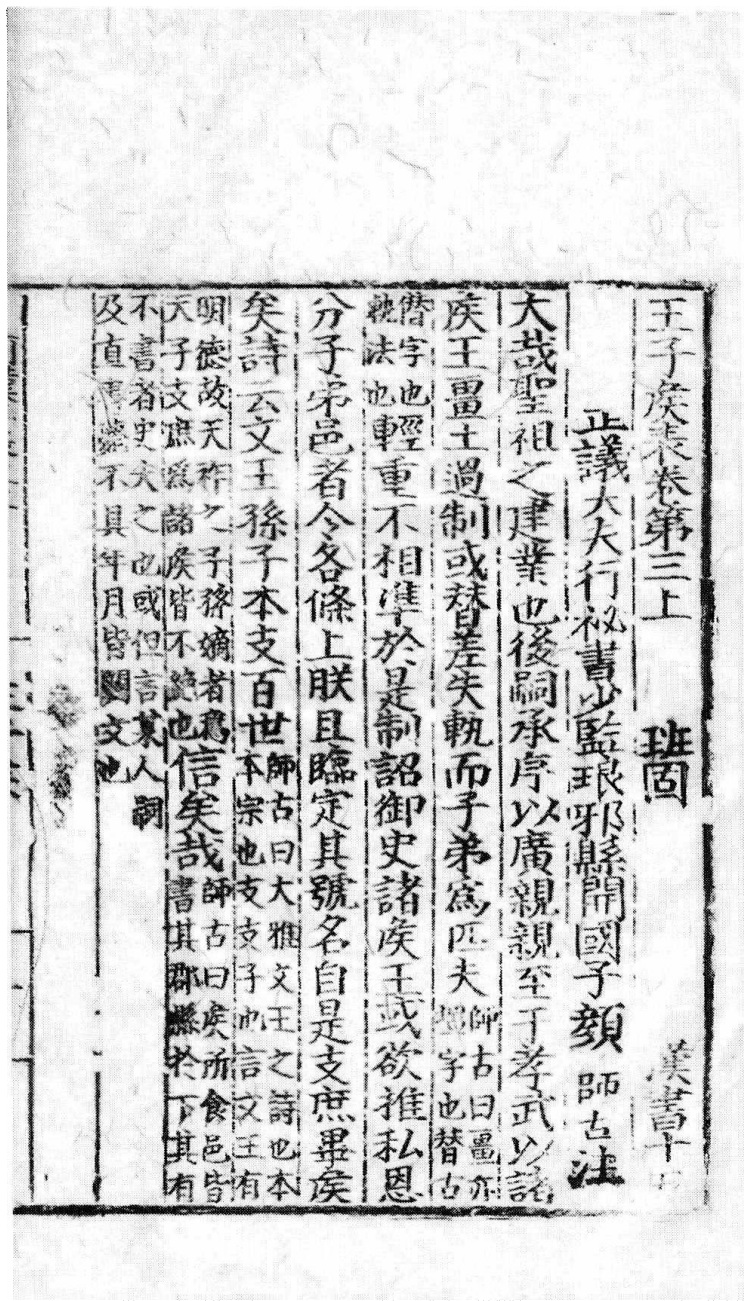 王子侯表卷第三上 班固 漢書十
正議大夫行祕書少監琅邪縣開國子顏師古注
大哉聖祖之建業也後嗣承序以廣親親至于孝武以諸
侯王畺土過制或替差失軌而子弟爲匹夫師古曰畺亦疆字也替古
僭字也軌法也輕重不相準於是制詔御史諸侯王或欲推私恩
分子弟邑者令各條上朕且臨定其號名自是支庶畢侯
矣詩云文王孫子本支百世師古曰大雅文王之詩也本本宗也支支子也言文王有
明德故天祚之子孫嫡者爲天子支庶爲諸侯皆不絶也信矣哉師古曰侯所食邑皆書其郡縣於下其有
不書者史失之也或但言某人嗣及直書薨不具年月皆闕文也